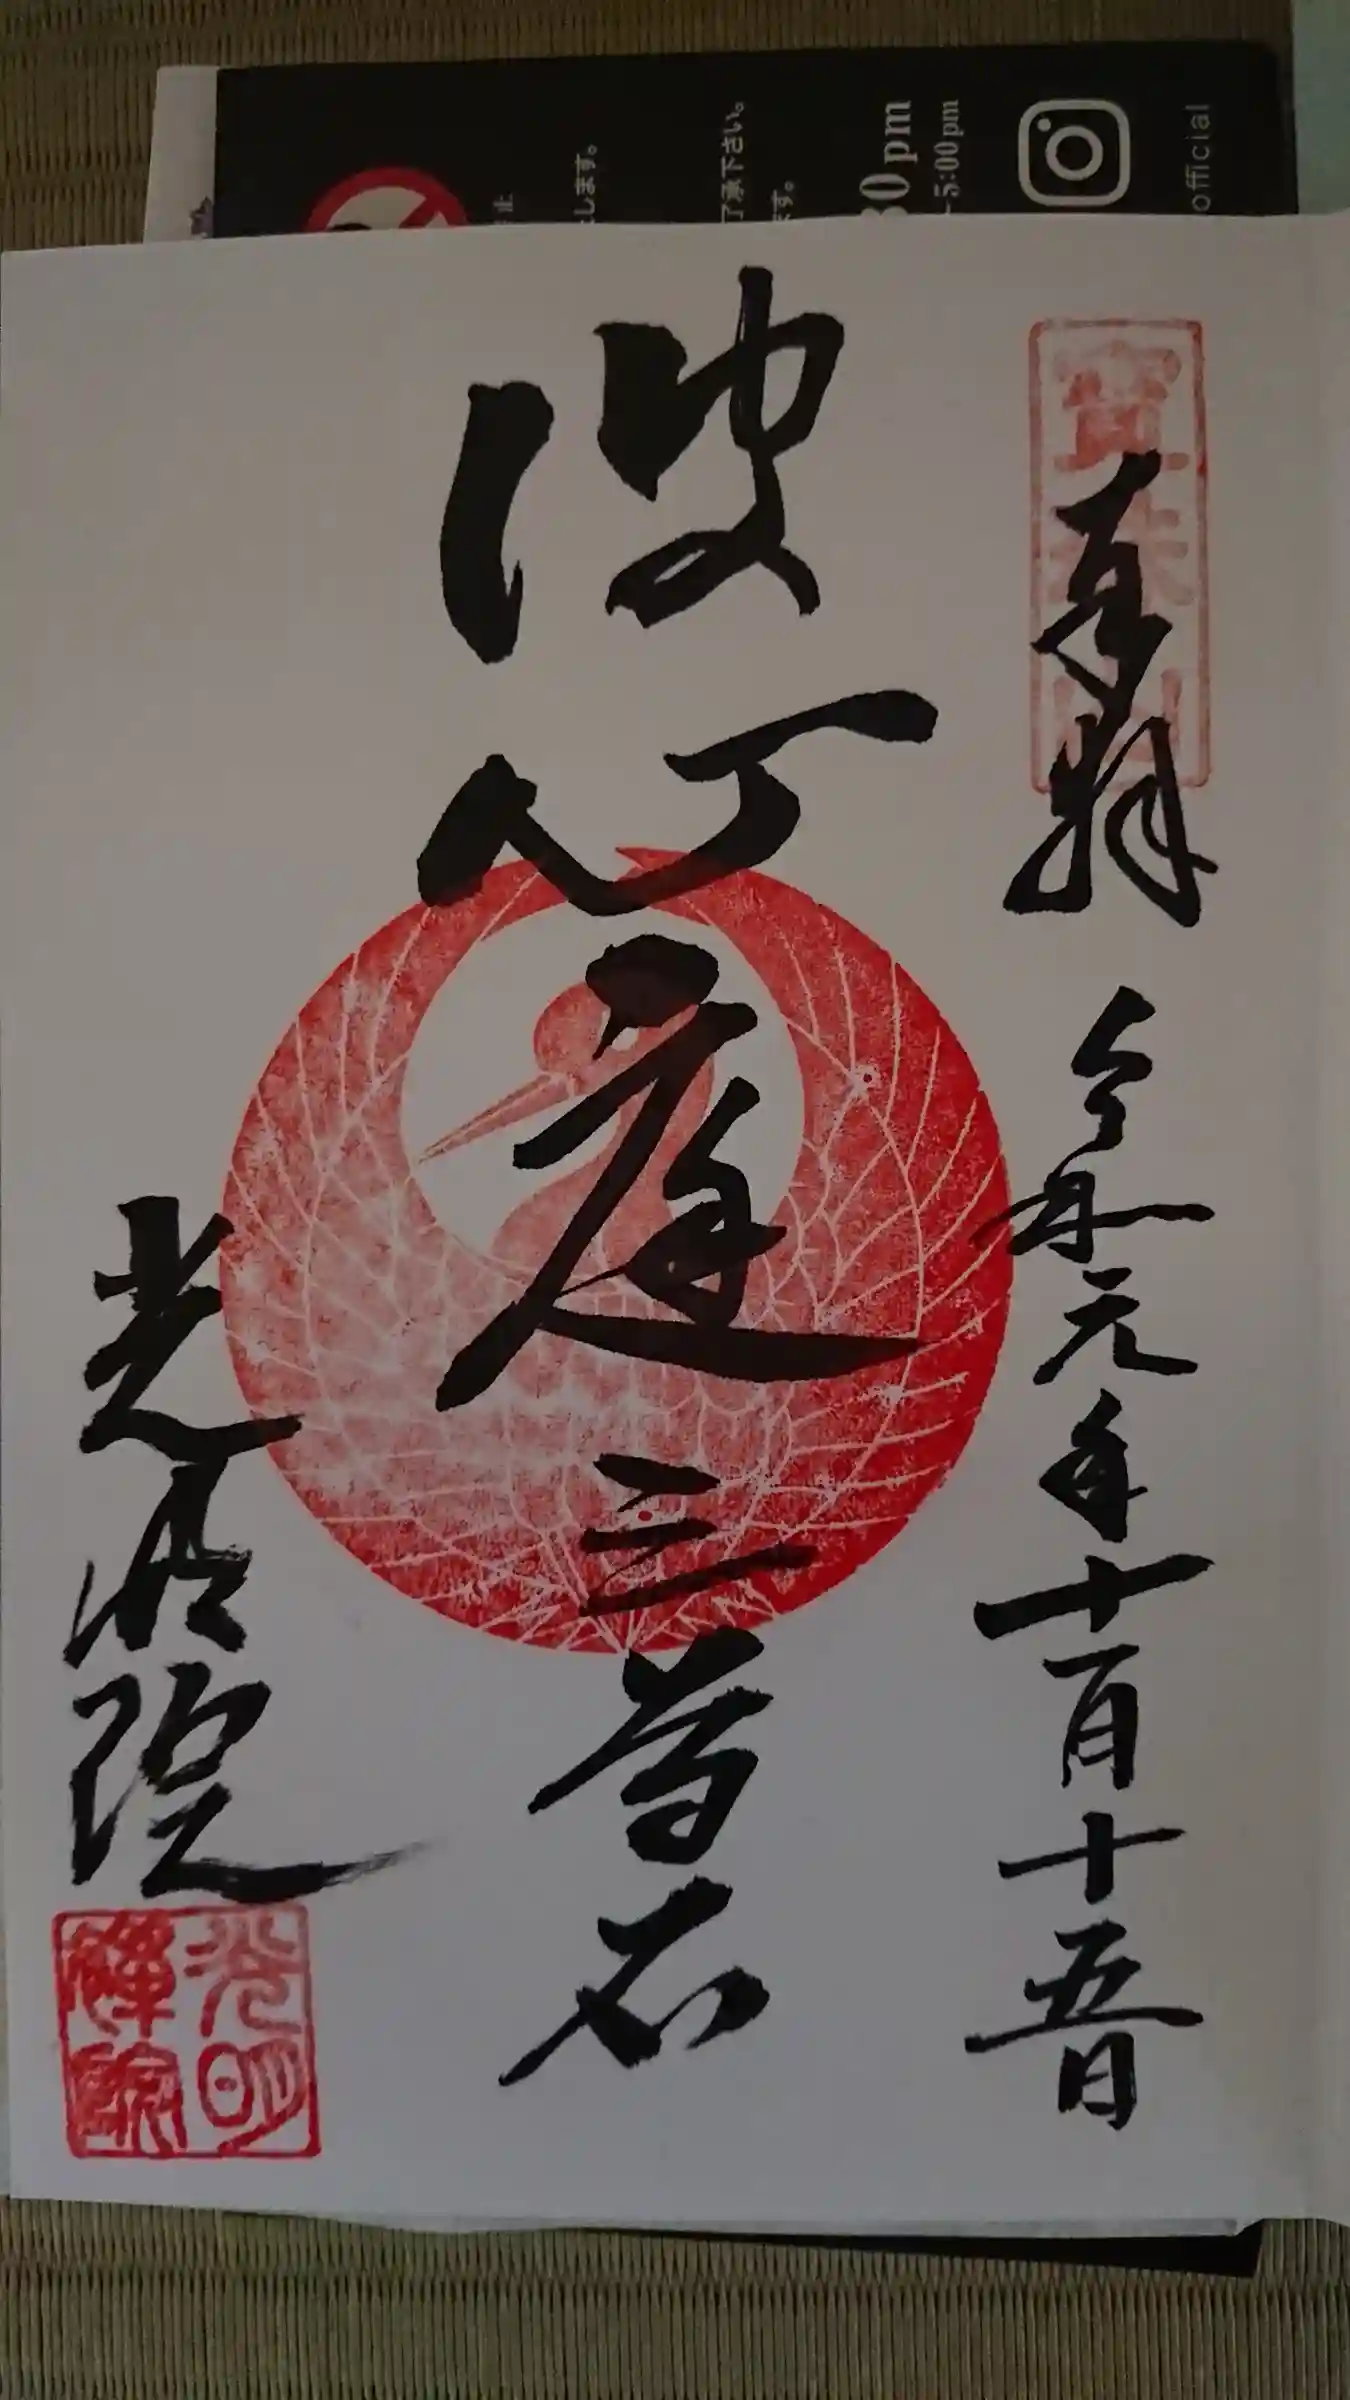 奉拝 令和元年十一月十五日
波心庭 三尊石
光明院
光明
禅院
します。
了承下さい。
ます。
30pm
-5:00pm
official
止